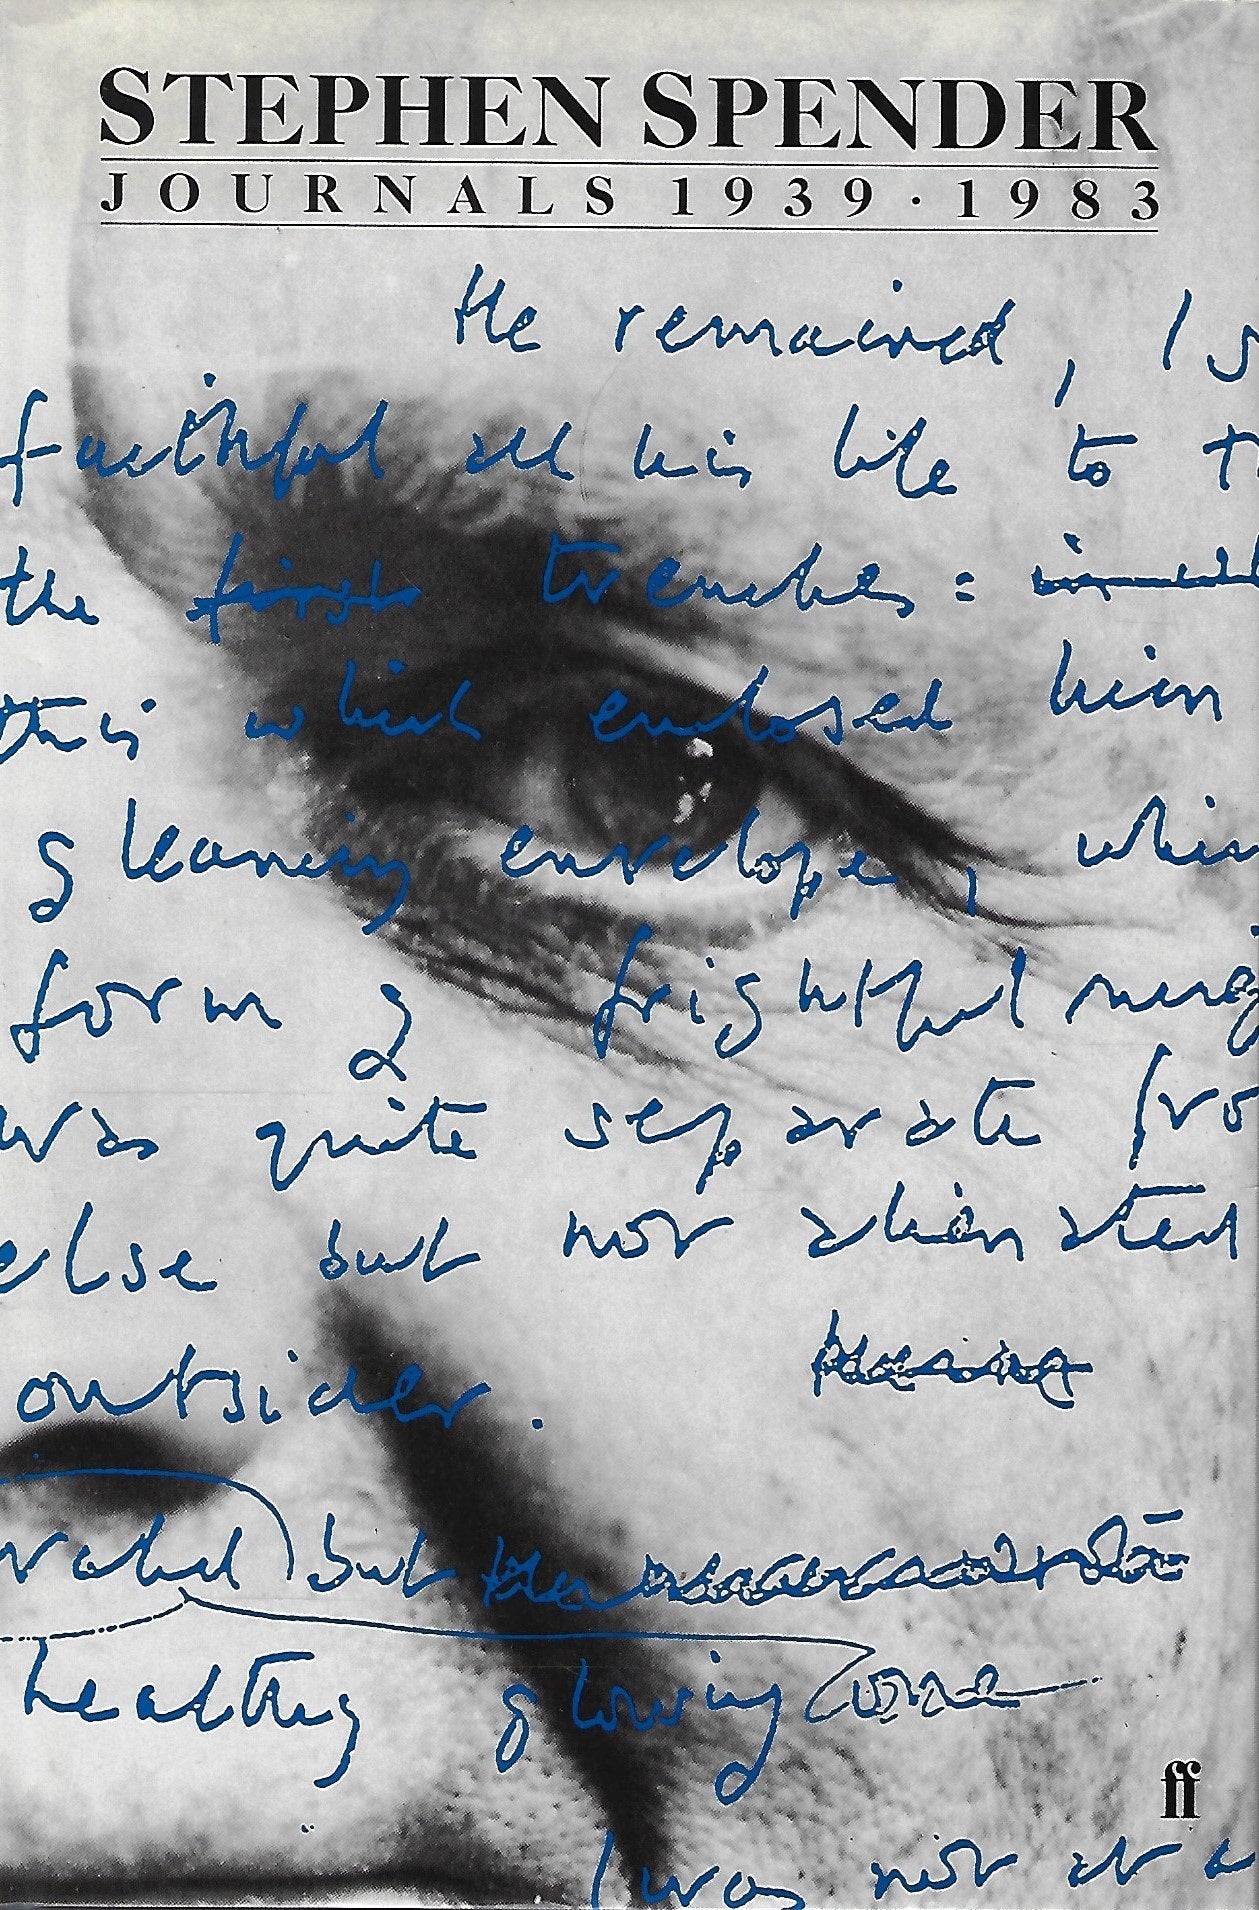 STEPHEN SPENDER
JOURNALS 1939 · 1983
He remained, I s
faithful all his life to t
the first trenches:
this which enclosed him
gleaming envelope, whic
form of frightful neig
was quite separate fro
else but not alienated
outsider.
but
healthy glowing one
ff
I was not at a